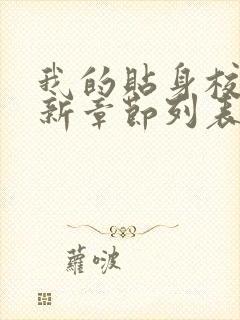 我的貼身校
新章節列表
蘿啵